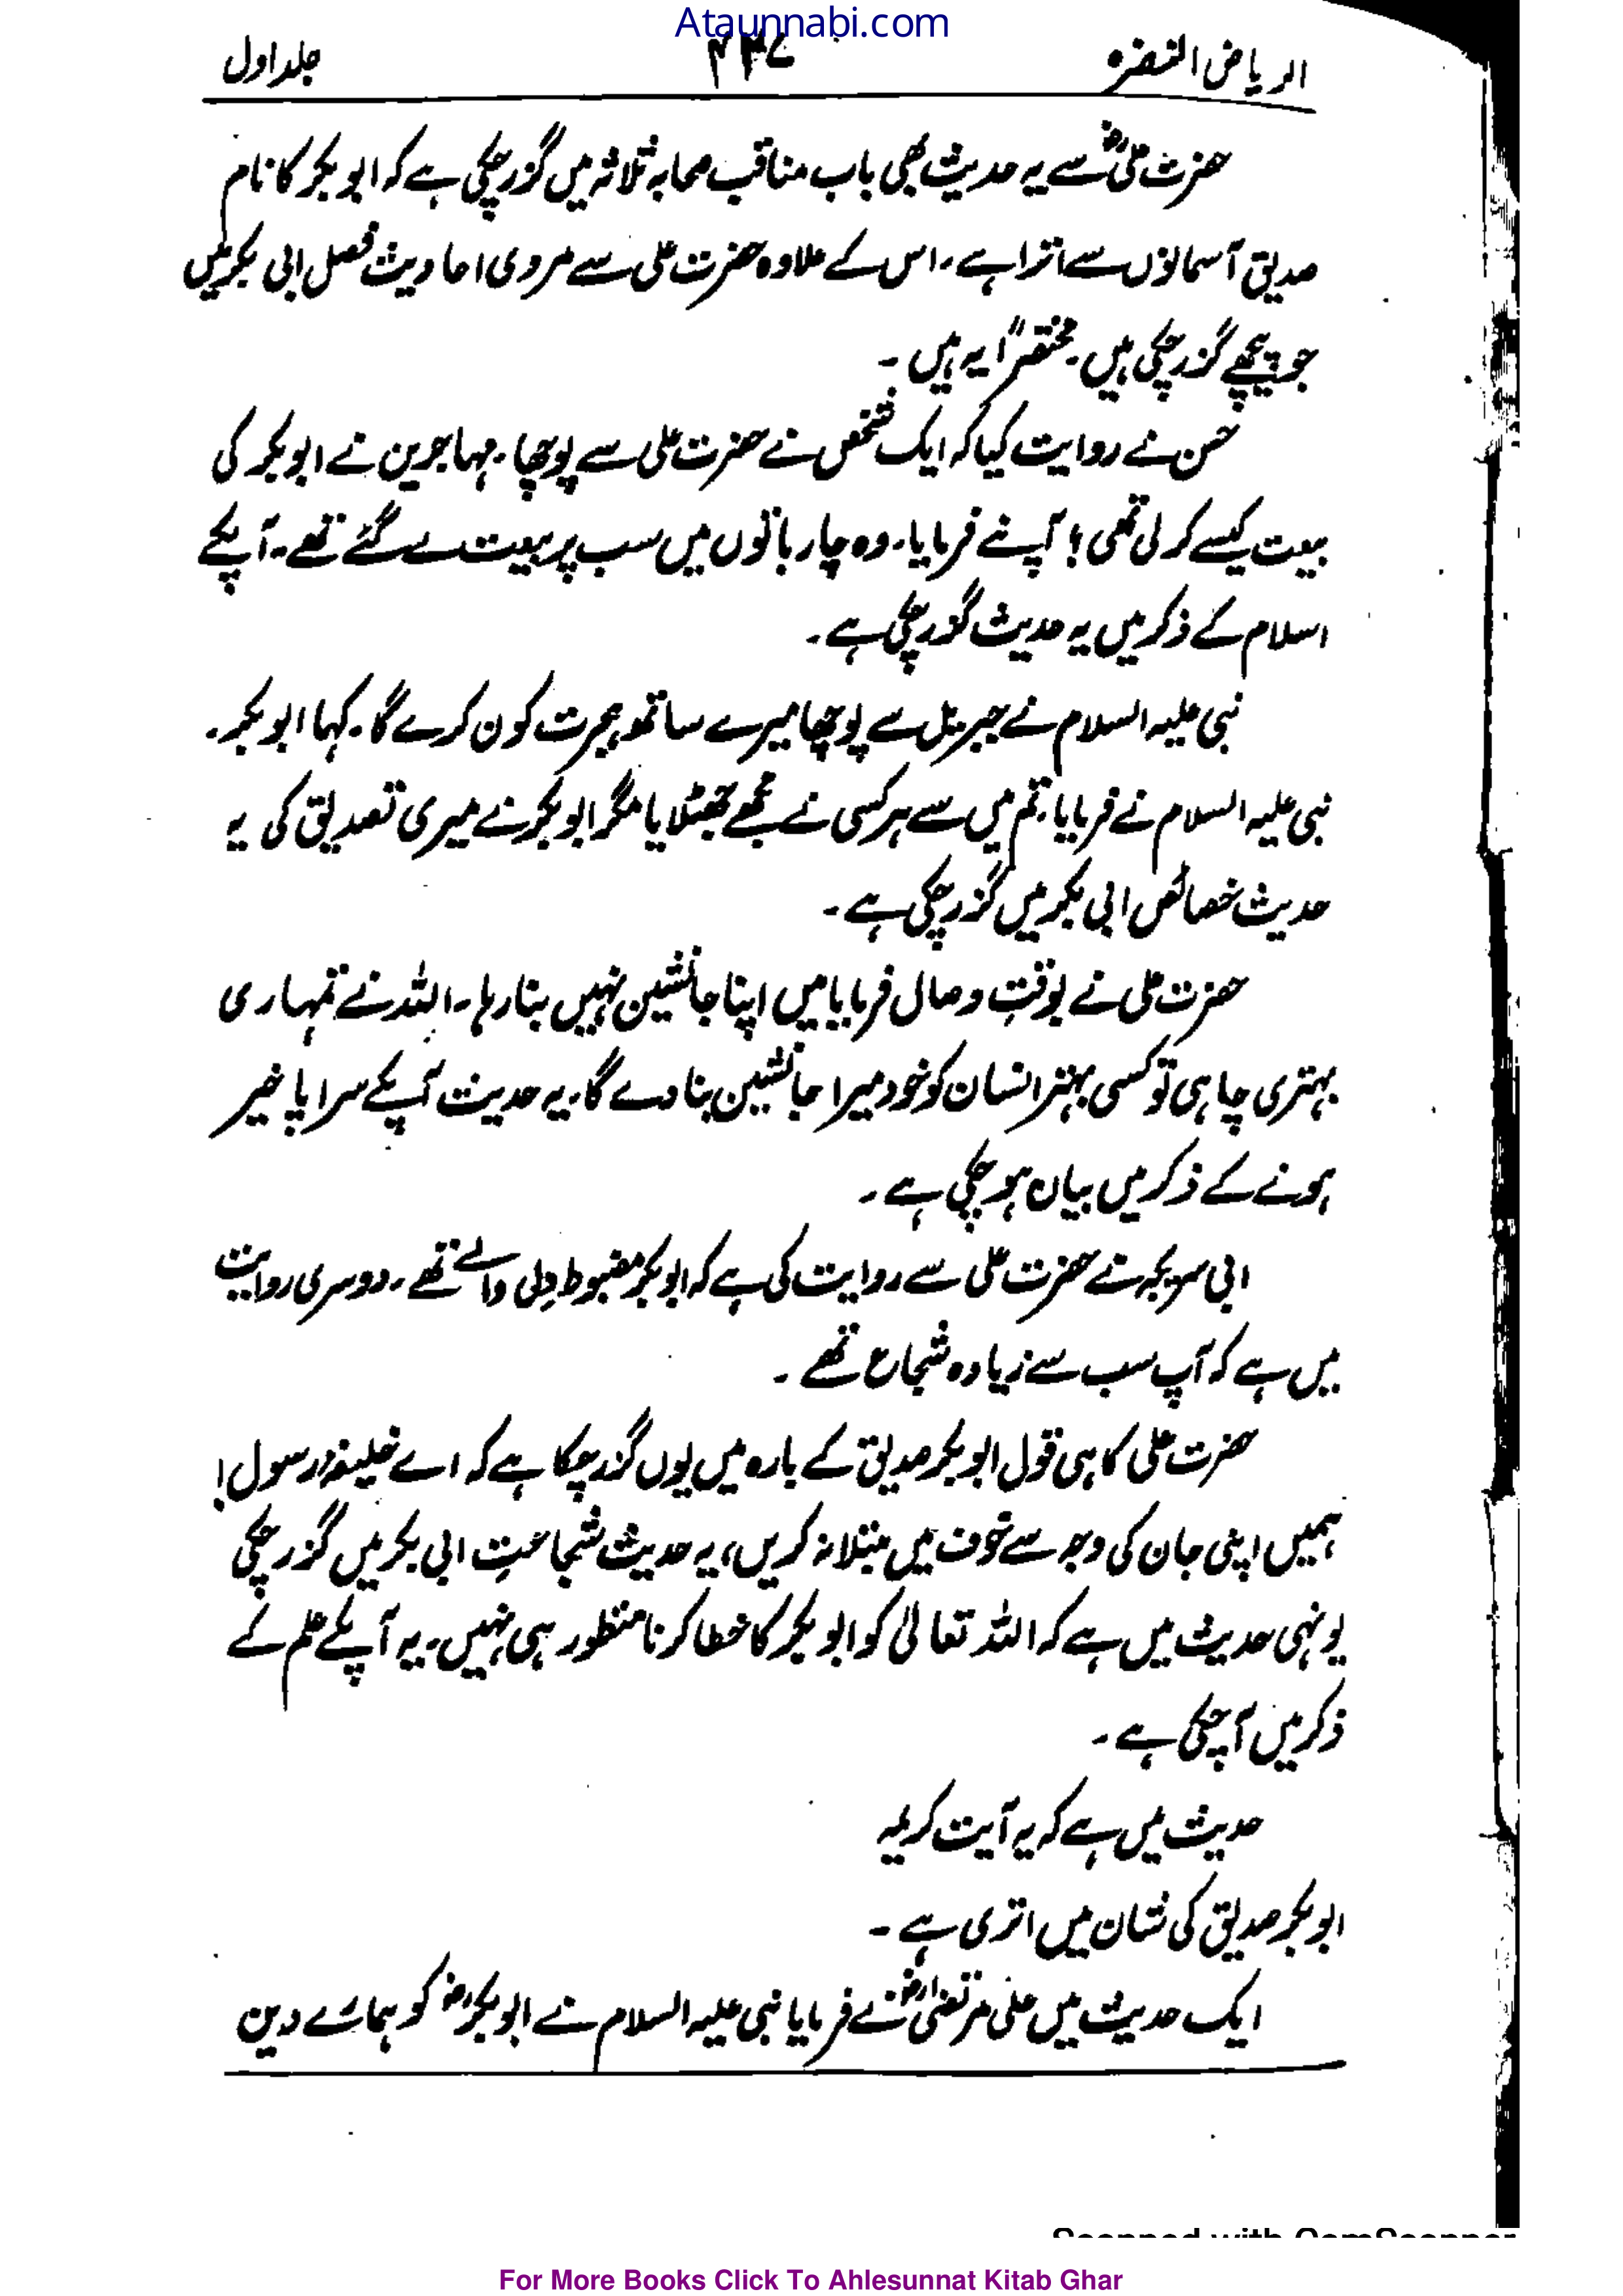 Ataunnabi.com
الریاض النضرہ ۴۳۷ جلد اول
حضرت علیؓ سے یہ حدیث بھی باب مناقب صحابہ ثلاثہ میں گزر چکی ہے کہ ابو بکر کا نام
صدیق آسمانوں سے اترا ہے۔ اس کے علاوہ حضرت علی سے مروی احادیث فصل ابی بکر میں
جو پیچھے گزر چکی ہیں۔ مختصراً یہ ہیں۔
حسن نے روایت کیا کہ ایک شخص نے حضرت علی سے پوچھا۔ مہاجرین نے ابو بکر کی
بیعت کیسے کر لی تھی؟ آپ نے فرمایا۔ وہ چار باتوں میں سب پر بیعت لے گئے تھے۔ آپکے
اسلام کے ذکر میں یہ حدیث گزر چکی ہے۔
نبی علیہ السلام نے جبریل سے پوچھا میرے ساتھ ہجرت کون کرے گا۔ کہا ابو بکر۔
نبی علیہ السلام نے فرمایا۔ تم میں سے ہر کسی نے مجھے جھٹلایا مگر ابو بکر نے میری تصدیق کی یہ
حدیث خصائص ابی بکر میں گزر چکی ہے۔
حضرت علی نے بوقتِ وصال فرمایا میں اپنا جانشین نہیں بنا رہا۔ اللہ نے تمہاری
بہتری چاہی تو کسی بہتر انسان کو خود میرا جانشین بنا دے گا۔ یہ حدیث آپکے سراپا خیر
ہونے کے ذکر میں بیان ہو چکی ہے۔
ابی سریجہ نے حضرت علی سے روایت کی ہے کہ ابو بکر مضبوط دِلی والے تھے۔ دوسری روایت
میں ہے کہ آپ سب سے زیادہ شجاع تھے۔
حضرت علی کا ہی قول ابو بکر صدیق کے بارہ میں یوں گزر چکا ہے کہ اے خلیفۂ رسول!
ہمیں اپنی جان کی وجہ سے خوف میں مبتلا نہ کریں، یہ حدیث شجاعتِ ابی بکر میں گزر چکی
یونہی حدیث میں ہے کہ اللہ تعالیٰ کو ابو بکر کا خطا کرنا منظور ہی نہیں۔ یہ آپکے علم کے
ذکر میں آ چکی ہے۔
حدیث میں ہے کہ یہ آیت کریمہ
ابو بکر صدیق کی شان میں اتری ہے۔
ایک حدیث میں علی مرتضیٰؓ نے فرمایا نبی علیہ السلام نے ابو بکرؓ کو ہمارے دین
Scanned with CamScanner
For More Books Click To Ahlesunnat Kitab Ghar